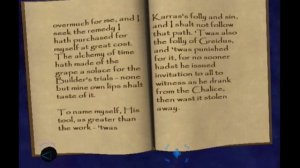 overmuch for me, and I
seek the remedy I
hath purchased for
myself at great cost.
The alchemy of time
hath made of the
grape a solace for the
Builder's trials - none
but mine own lips shalt
taste of it.
To name myself, His
tool, as greater than
the work - 'twas
Karras's folly and sin,
and I shalt not follow
that path. 'Twas also
the folly of Greidus,
and 'twas punished
for it, for no sooner
hadst he issued
invitation to all to
witness as he drank
from the Chalice,
then wast it stolen
away.